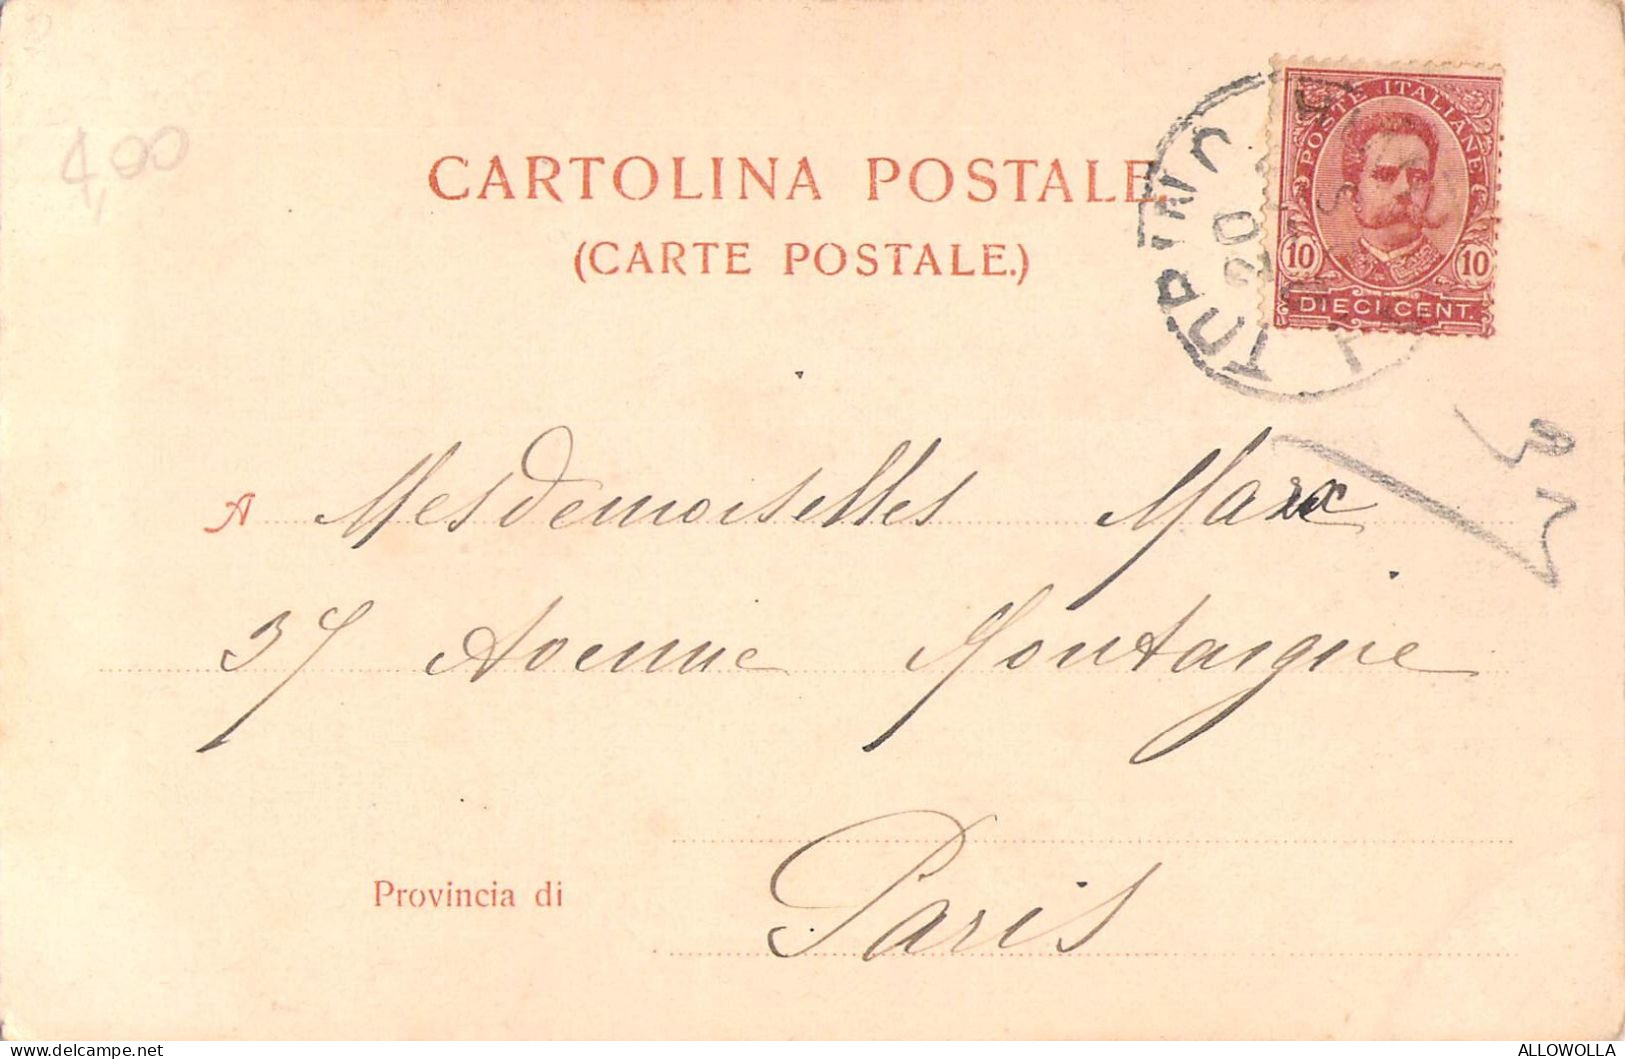 4,00
CARTOLINA POSTALE.
(CARTE POSTALE.)
POSTE ITALIANE
10 10
DIECI CENT.
TORINO
20
A Mesdemoiselles Marx
37 Avenue Montaigne
Provincia di Paris
ALLOWOLLA